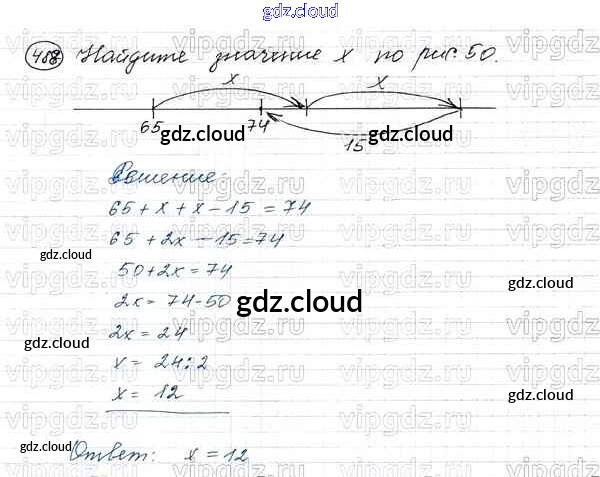 gdz.cloud
488 Найдите значение x по рис. 50.
x x
65 74 15
gdz.cloud gdz.cloud
Решение:
65 + x + x - 15 = 74
65 + 2x - 15 = 74
gdz.cloud
50 + 2x = 74
gdz.cloud
2x = 74 - 50
gdz.cloud
2x = 24
gdz.cloud
gdz.cloud
x = 24 : 2
x = 12
Ответ: x = 12
gdz.cloud
gdz.cloud
vipgdz.ru